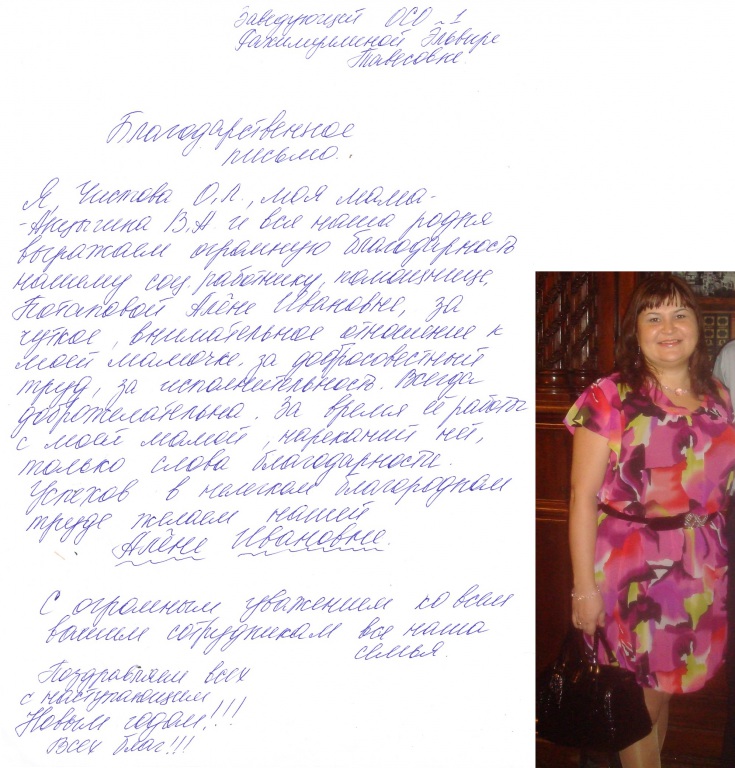 Заведующей ОСО 1
Фахимуллиной Эльвире
Тависовне.
Благодарственное
письмо.
Я, Чистова О.Л., моя мама-
-Анцыгина В.А. и вся наша родня
выражаем огромную благодарность
нашему соц. работнику, помощнице,
Потаповой Алёне Ивановне, за
чуткое, внимательное отношение к
моей мамочке, за добросовестный
труд, за исполнительность. Всегда
доброжелательна. За время её работы
с моей мамой, нареканий нет,
только слова благодарности.
Успехов в нелегком благородном
труде желаем нашей
Алёне Ивановне.
С огромным уважением ко всем
вашим сотрудникам вся наша
семья.
Поздравляем всех
с наступающим
Новым годом!!!
Всех благ!!!